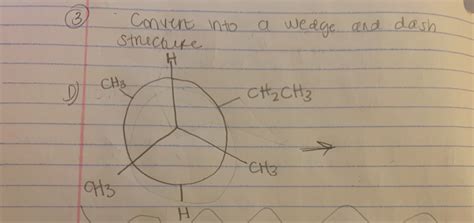 ③ Convert into a wedge and dash
structure
H
CH3
D) CH2CH3
CH3
CH3
H